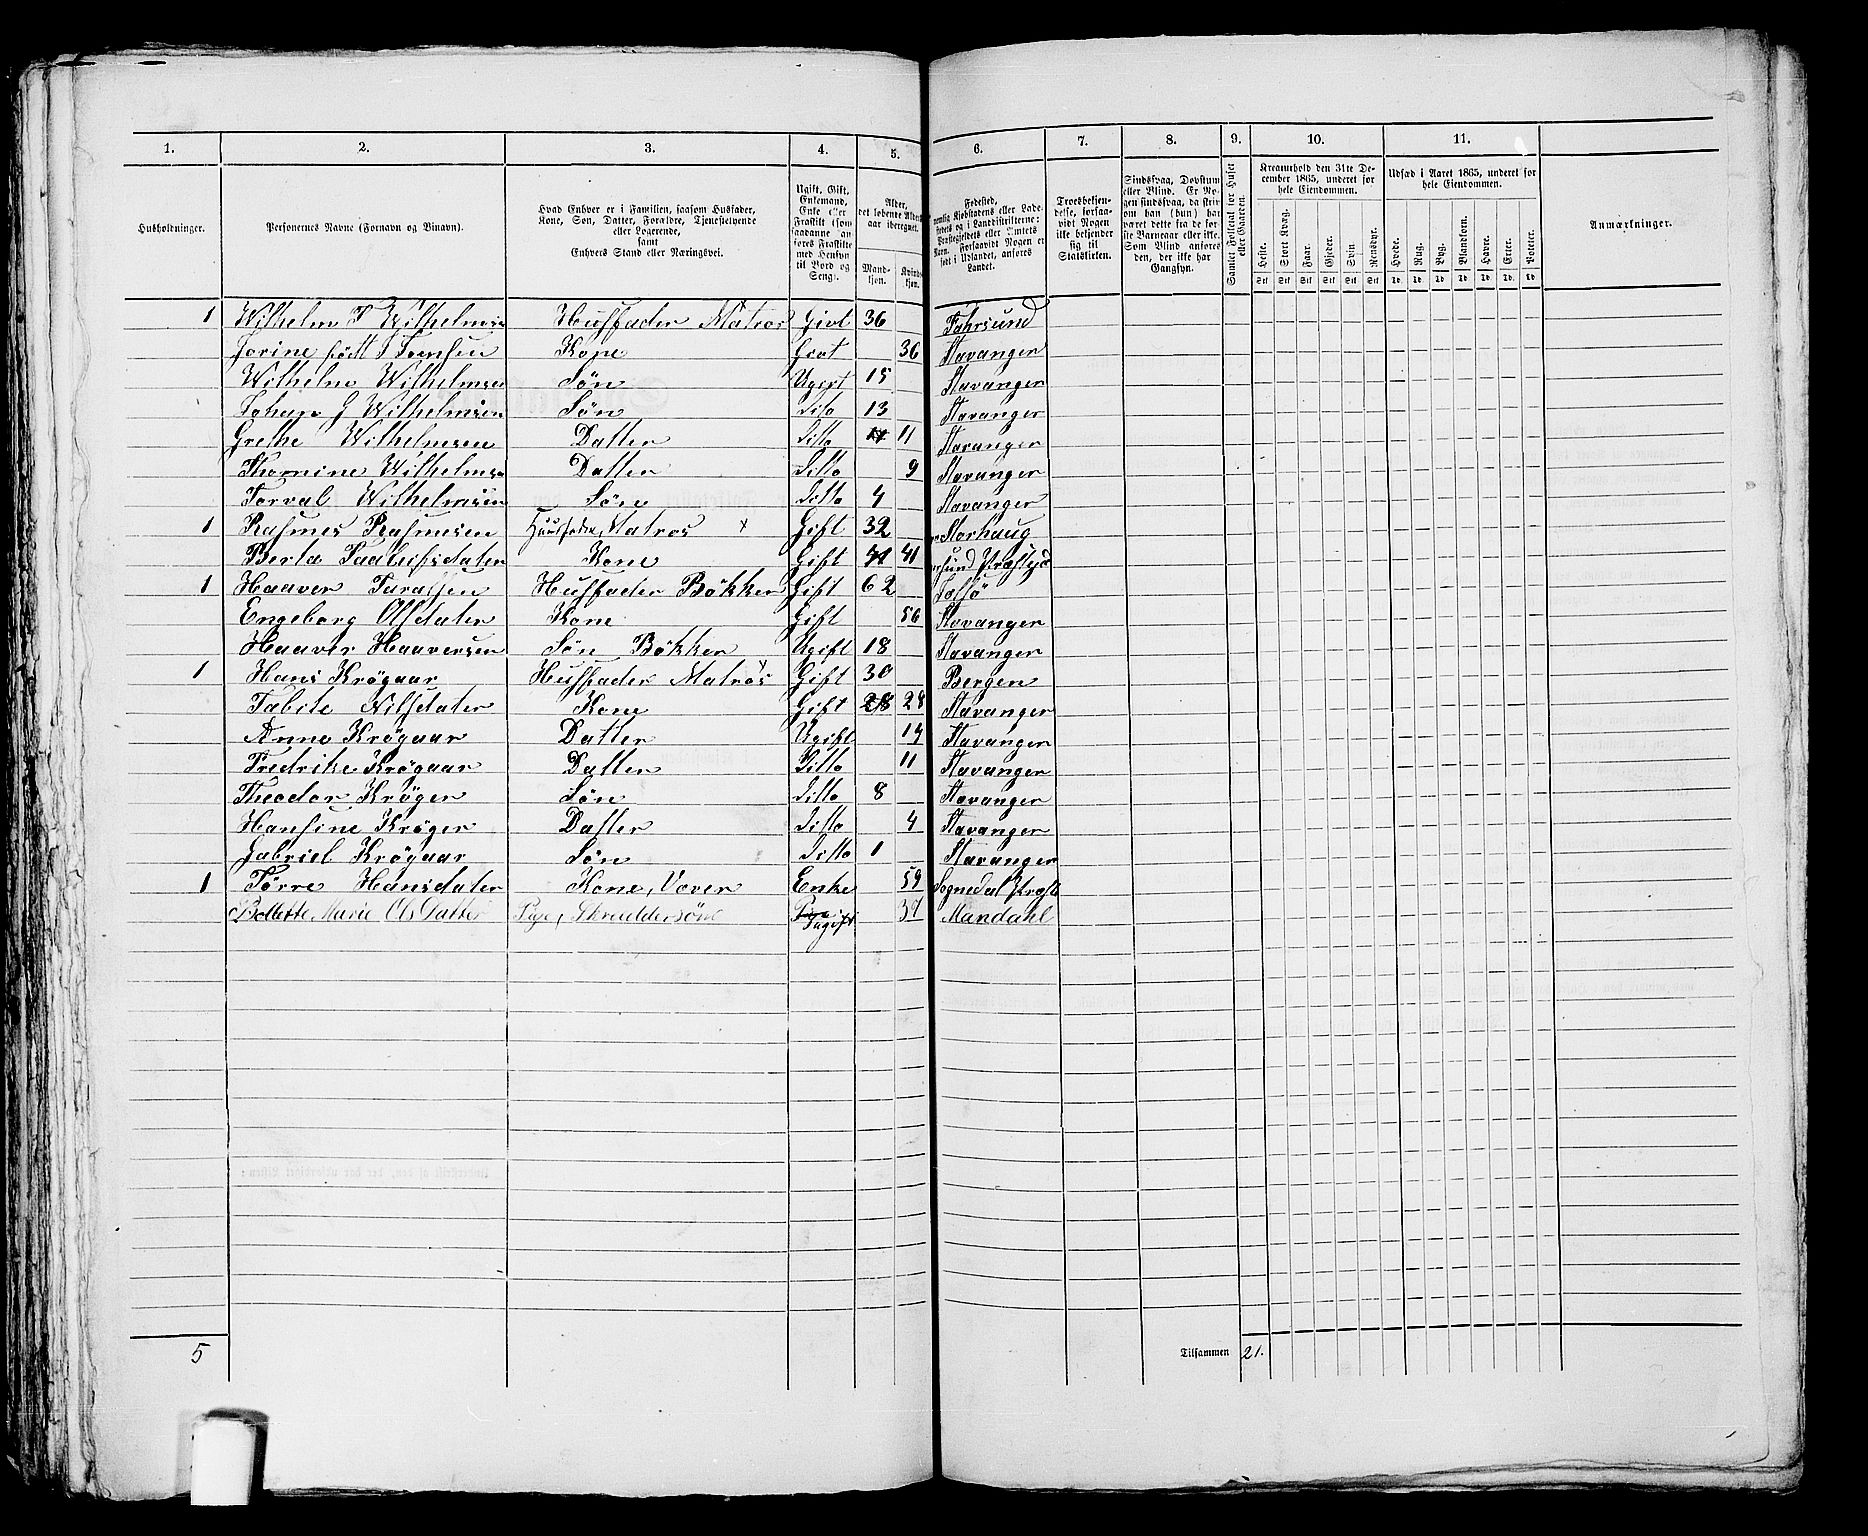 1. 2. 3. 4. 5. 6. 7. 8. 9. 10. 11.
Husholdninger.
Personernes Navne (Fornavn og Tilnavn).
Hvad Enhver er i Familien, saasom Husfader, Kone, Søn, Datter, Forældre, Tjenestetyende eller Logerende, samt Enhvers Stand eller Næringsvei.
Ugift, Gift, Enkemand, Enke eller Fraskilt (som saadanne anføres Fraskilte med Hensyn til Bord og Seng).
Alder, det løbende Alders-aar iberegnet.
Mand-kjøn. Kvind-kjøn.
Fødested, nemlig Kjøbstadens eller Ladestedets og i Landdistrikterne: Præstegjeldets eller Amtets Navn. Forsaavidt Nogen er født i Udlandet, anføres Landet.
Troesbekjendelse, forsaavidt Nogen ikke bekjender sig til Statskirken.
Sindssvag, Døvstum eller Blind. Er Nogen sindssvag, da strix om han (hun) har været dette fra de første Barneaar eller ikke. Som Blind ansøres den, der ikke har Gangsyn.
Samlet Folketal for Huset eller Gaarden.
Kreaturhold den 31te December 1865, underet for hele Eiendommen.
Heste. Stort Kvæg. Faar. Gjeder. Svin. Rensdyr.
Udsæd i Aaret 1865, underet for hele Eiendommen.
Hvede. Rug. Byg. Blandkorn. Havre. Erter. Poteter.
Anmærkninger.
Stk Stk Stk Stk Stk Stk Td. Td. Td. Td. Td. Td. Td.
1 Wilhelm T Wilhelmsen Husfader Matros Givt 36 Fahrsund
Jorine født Tomsen Kone Givt 36 Stavanger
Wilhelm Wilhelmsen Søn Ugivt 15 Stavanger
Johan G Wilhelmsen Søn Dito 13 Stavanger
Grethe Wilhelmsen Datter Ditto 11 11 Stavanger
Thomine Wilhelmsen Datter Ditto 9 Stavanger
Torval Wilhelmsen Søn Ditto 4 Stavanger
1 Rasmus Rasmusen Huusfader, Matros x Gift 32 Storhaug
Berta Kone Gift 41 41 Præstgd
1 Haaver Taralsen Husfader Bøkker Gift 62 Jolsø
Engeborg Olsdater Kone Gift 56 Stavanger
Haaver Haaversen Søn Bøkker Ugift 18 Stavanger
1 Hans Krøgaar Husfader Matros Gift 30 Bergen
Tabite Nilsdater Kone Gift 28 28 Stavanger
Anne Krøgaar Datter Ugift 14 Stavanger
Fredrike Krøgaar Datter Ditto 11 Stavanger
Theodor Krøger Søn Ditto 8 Stavanger
Hansine Krøger Datter Ditto 4 Stavanger
Gabriel Krøgaar Søn Ditto 1 Stavanger
1 Tørre Hansdater Kone, Væver Enke 59 Sognedal Præst
Bollette Marie Ols Datter Pige, Skreddersøm Ugift 37 Mandahl
5 Tilsammen 21.